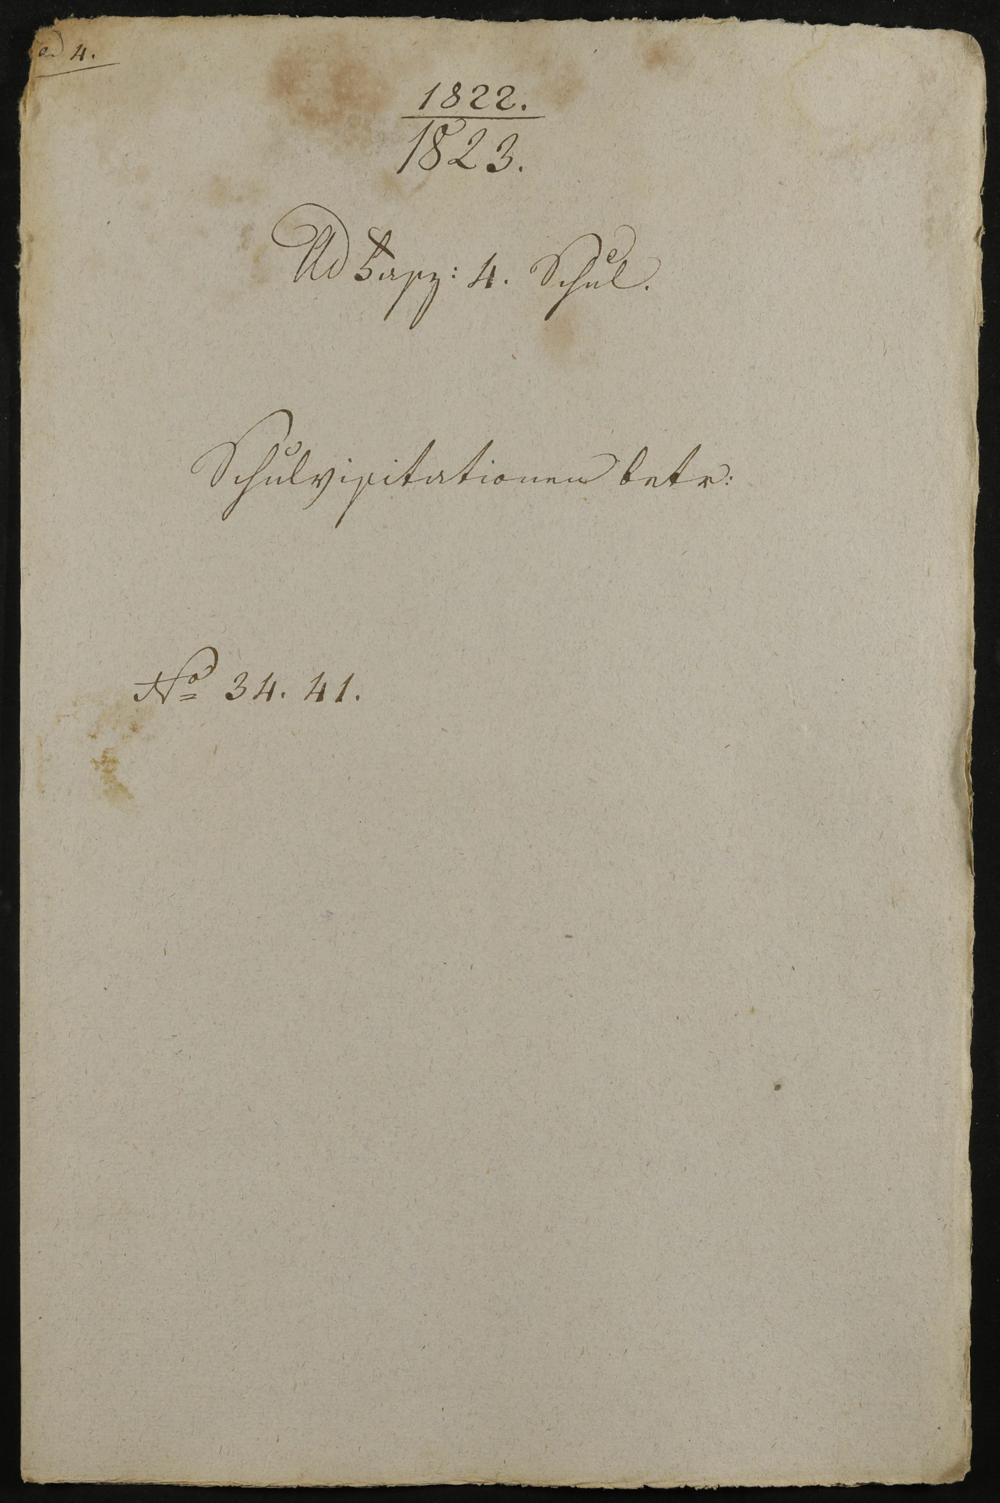 ad 4.
1822.
1823.
Ad Fasz: 4. Schul.
Schulvisitationen betr:
No 34. 41.